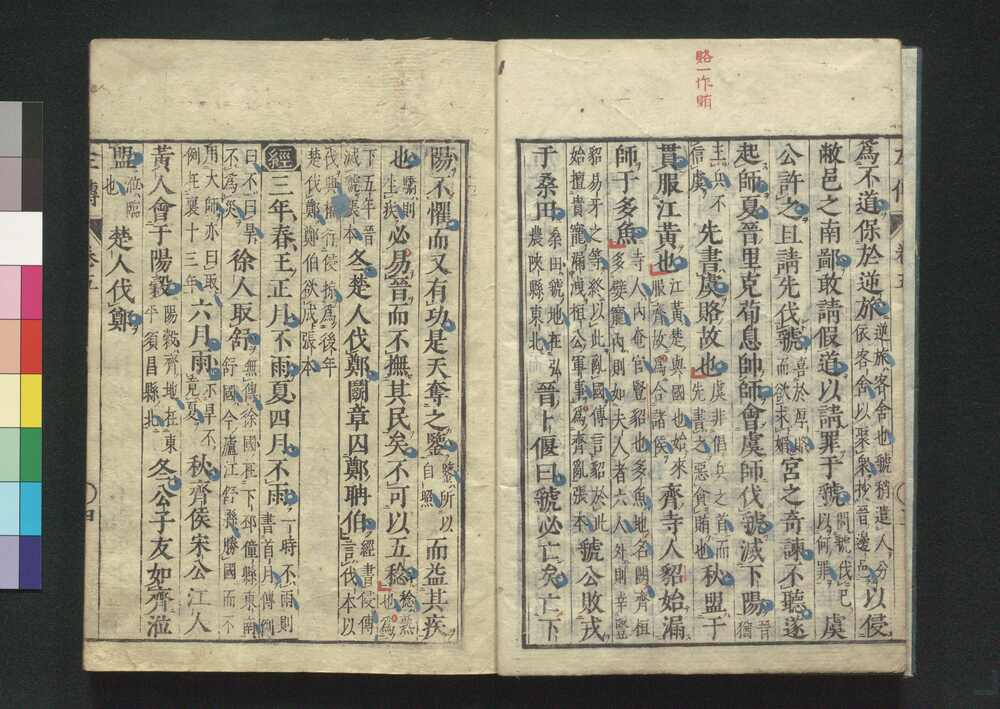 賂一作賄
爲不道保於逆旅逆旅客舍也虢稍遣人分依客舍以聚衆抄晉邊邑以侵
敝邑之南鄙敢請假道以請罪于虢問虢伐己以何罪虞
公許之且請先伐虢喜於厚賂而欲求媚宮之奇諫不聽遂
起師夏晉里克荀息帥師會虞師伐虢滅下陽晉猶
主兵不信虞先書虞賄故也虞非倡兵之首而先書之惡貪賄也秋盟于
貫服江黃也江黃楚與國也始來服齊故爲合諸侯齊寺人貂始漏
師于多魚寺人內奄官豎貂也多魚地名闕齊桓多嬖寵內則如夫人者六人外則幸豎
貂易牙之等終以此亂國傳言貂於此始擅貴寵漏洩桓公軍事爲齊亂張本虢公敗戎
于桑田桑田虢地在弘農陝縣東北晉卜偃曰虢必亡矣亡下
陽不懼而又有功是天奪之鑒鑒所以自照而益其疾
也驕則生疾必易晉而不撫其民矣不可以五稔稔熟也爲
下五年晉滅虢張本冬楚人伐鄭鬭章囚鄭聃伯經書侵傳言伐本以
伐興權行侵掠爲後年楚伐鄭鄭伯欲成張本
經三年春王正月不雨夏四月不雨一時不雨則書首月傳例
曰不曰旱不爲災徐人取舒無傳徐國在下邳僮縣東南舒國今廬江舒縣勝國而不
用大師亦曰取例在襄十三年六月雨示旱不竟夏秋齊侯宋公江人
黃人會于陽穀陽穀齊地在東平須昌縣北冬公子友如齊涖
盟涖臨也楚人伐鄭